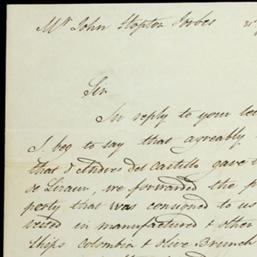 Mr John Stopton Forbes
Sir
In reply to your
I beg to say that agreably
that Dn Andres del Castillo gave
de Linaur, we forwarded the
perty that was consigned to us
vested in manufactured & other
Ships Colombia & Olive Branch